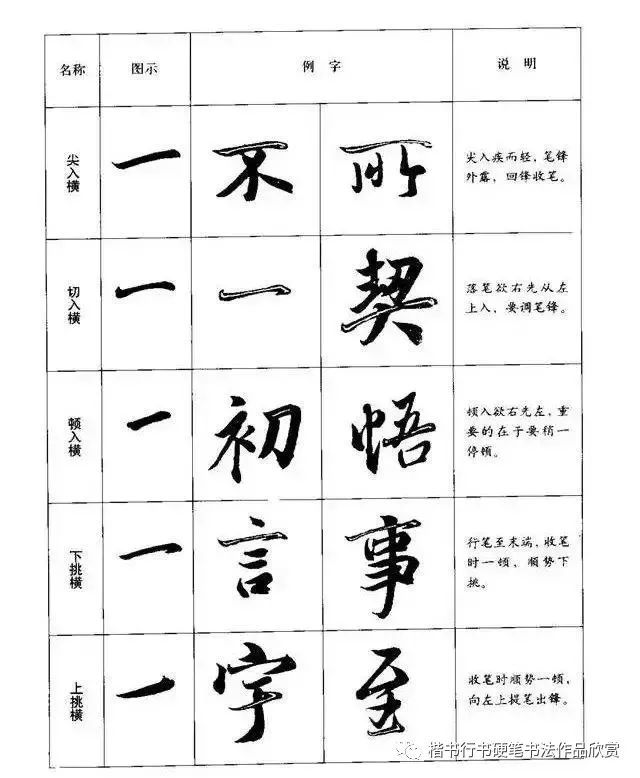 名称 图示 例字 说明
尖入横 一 不 所 尖入疾而轻，笔锋
外露，回锋收笔。
切入横 一 一 契 落笔欲右先从左
上入，要调笔锋。
顿入横 一 初 悟 顿入欲右先左，重
要的在于要稍一
停顿。
下挑横 一 言 事 行笔至末端，收笔
时一顿，顺势下
挑。
上挑横 一 字 至 收笔时顺势一顿，
向左上提笔出锋。
楷书行书硬笔书法作品欣赏